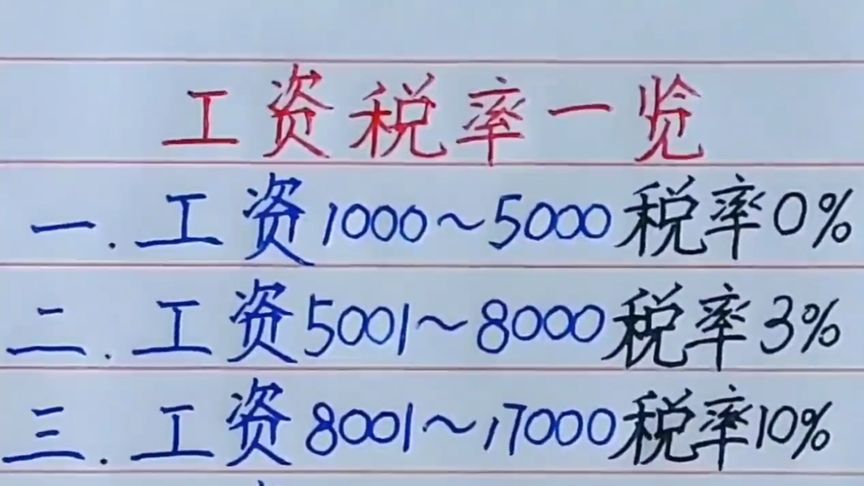 工资税率一览
一.工资1000~5000税率0%
二.工资5001~8000税率3%
三.工资8001~17000税率10%